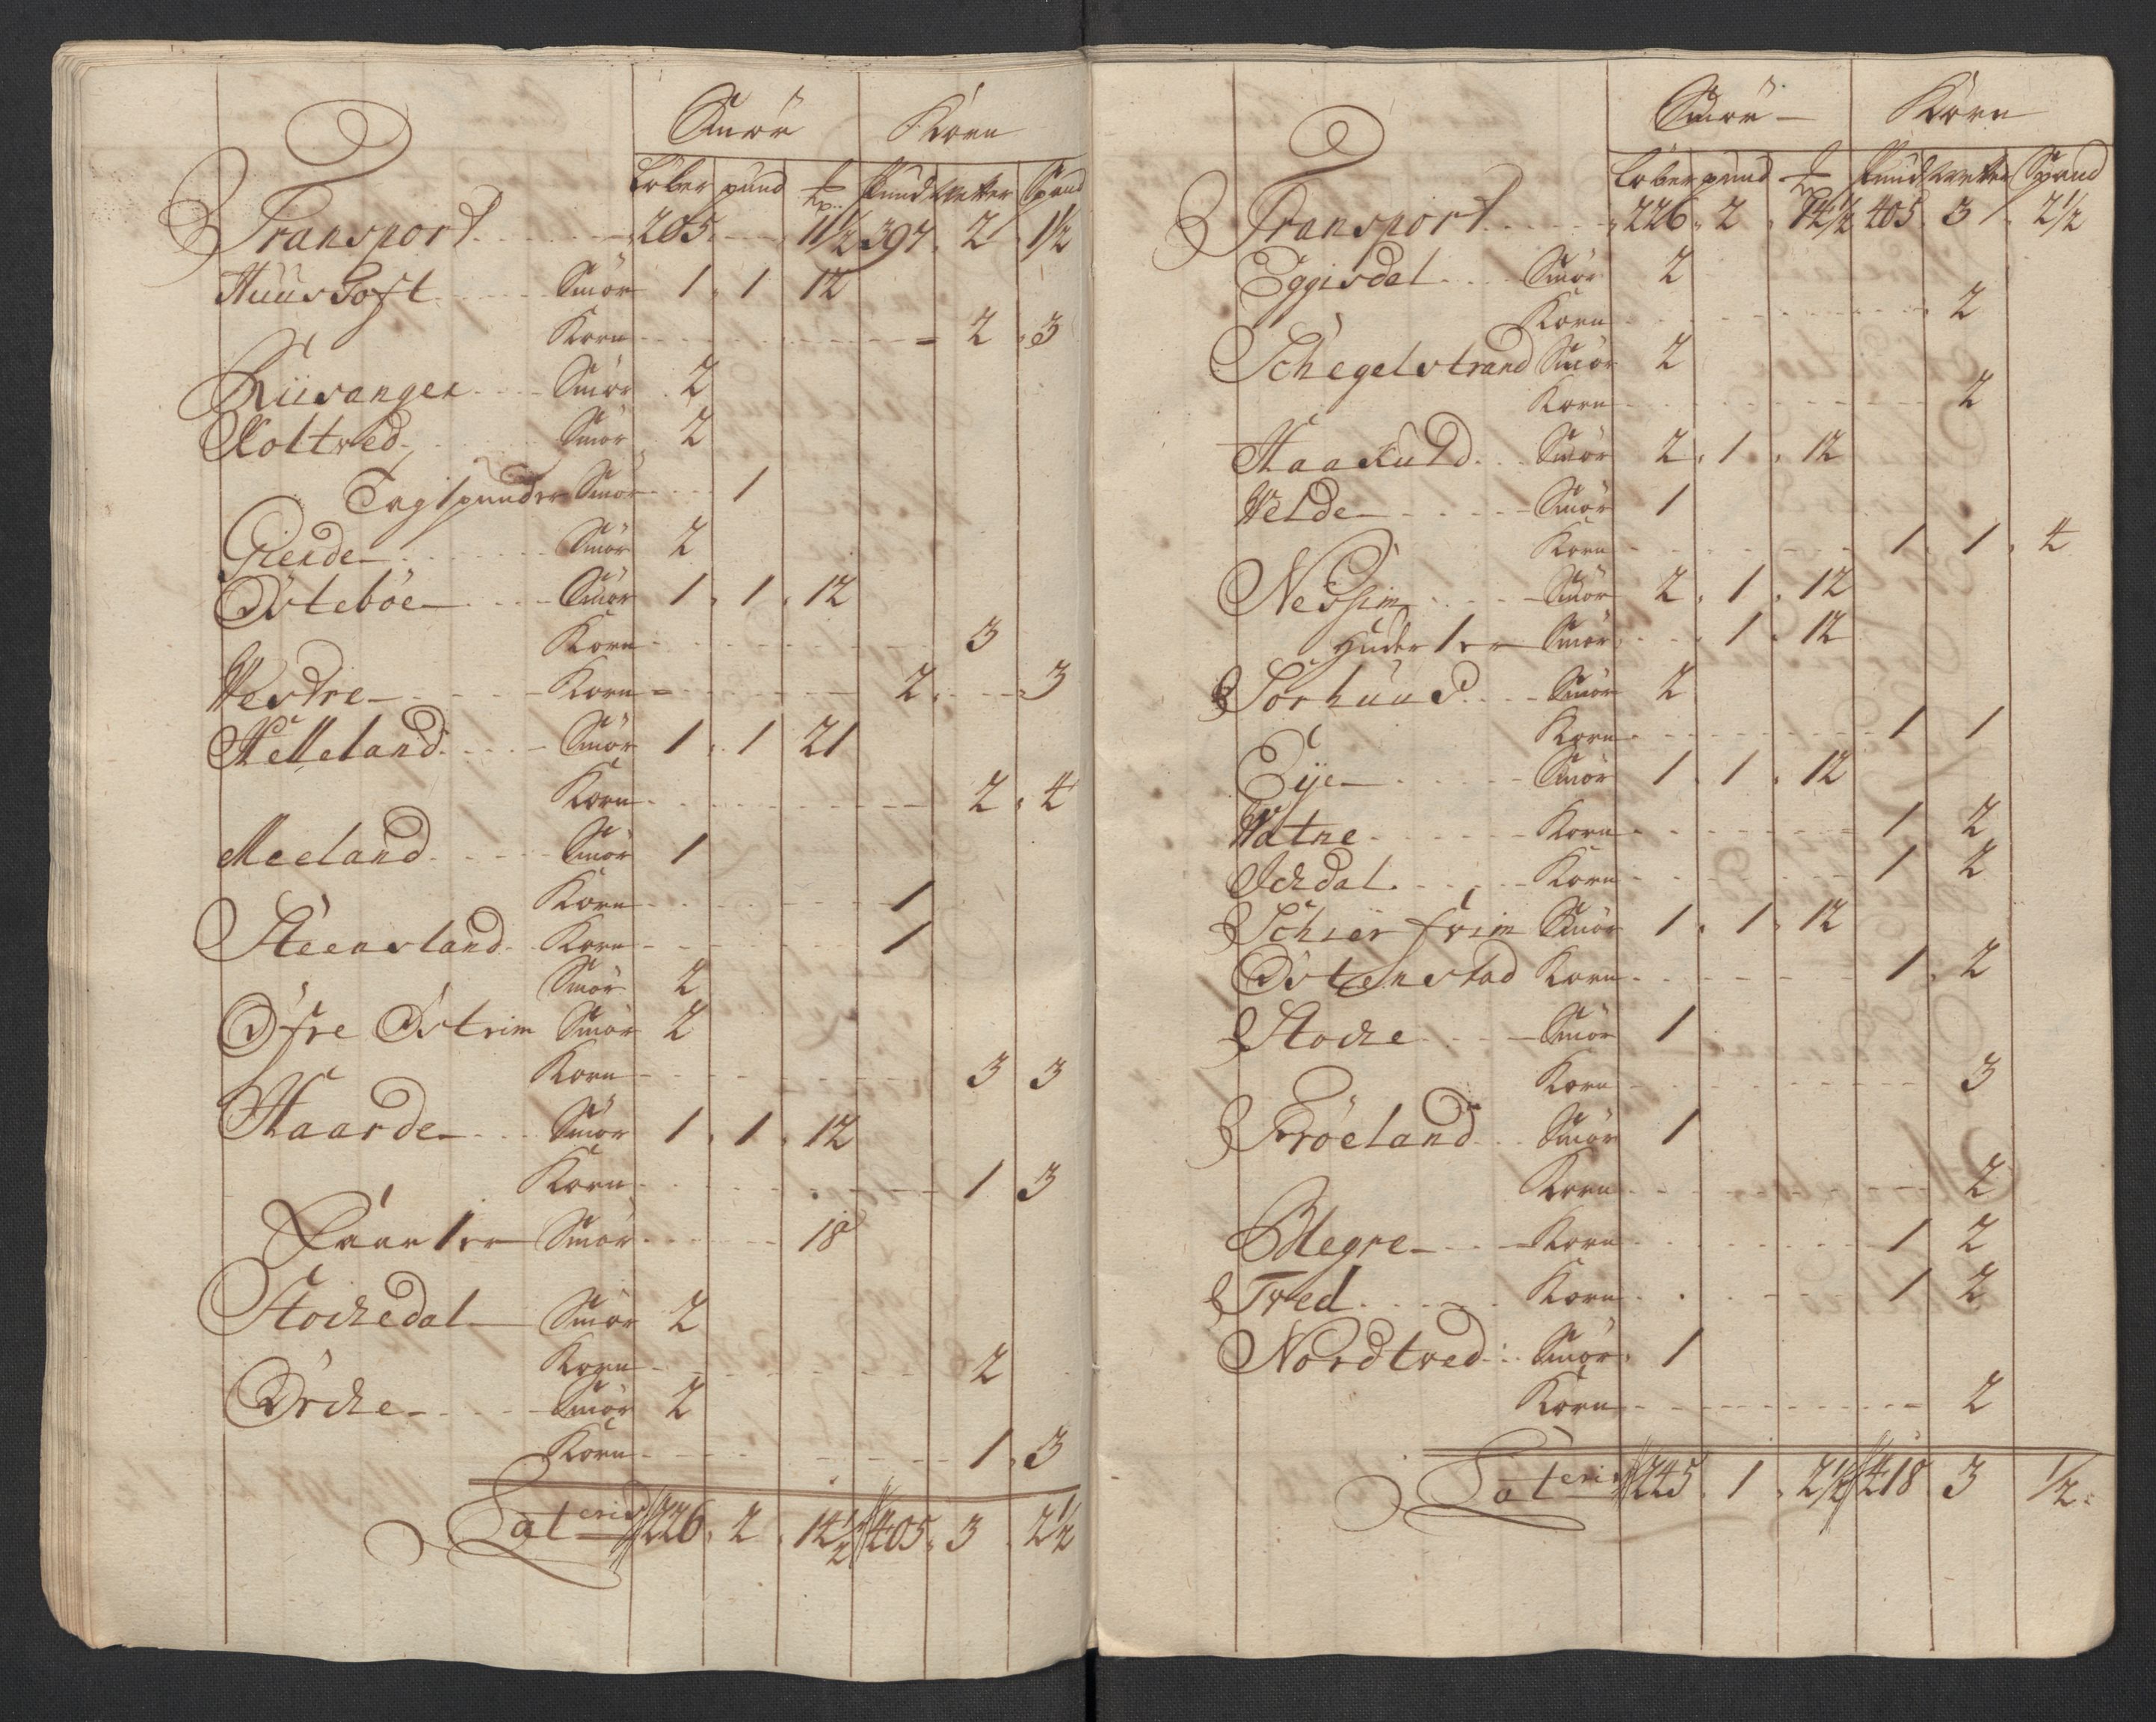 Smör Korn
Löber pund Pund Vetter Spand
Transport 205 — 11½ 397 2 1½
Huustoft Smör 1 1 12
Korn 2 3
Riisanger Smör 2
Koltved Smör 2
Smör 1
Gierde Smör 2
Östeböe Smör 1 1 12
Korn 3
Vestre Korn 2 3
Helleland Smör 1 1 21
Korn 2 4
Meeland Smör 1
Korn 1
Steensland Korn 1
Smör 2
Öfre Östrim Smör 2
Korn 3 3
Haarde Smör 1 1 12
Korn 1 3
Faar 1 er Smör 18
Stochedal Smör 2
Korn 2
Örche Smör 2
Korn 1 3
Lateris 226 2 14½ 405 3 2½
Smör Korn
Löber pund Pund Vetter Spand
Transport 226 2 14½ 405 3 2½
Eggisdal Smör 2
Korn 2
Schegelstrand Smör 2
Korn 2
Haakuld Smör 2 1 12
Velde Smör 1
Korn 1 1 4
Nessim Smör 2 1 12
Huder 1 er Smör 1 12
Sörhuus Smör 2
Korn 1 1
Eije Smör 1 1 12
Vatne Korn 1 2
Ichdal Korn 1 2
Schierfrim Smör 1 1 12
Östenstad Korn 1 2
Stoche Smör 1
Korn 3
Fröeland Smör 1
Korn 2
Blegre Korn 1 2
Tved Korn 1 2
Nordtved Smör 1
Korn 2
Lateris 245 1 2½ 418 3 ½